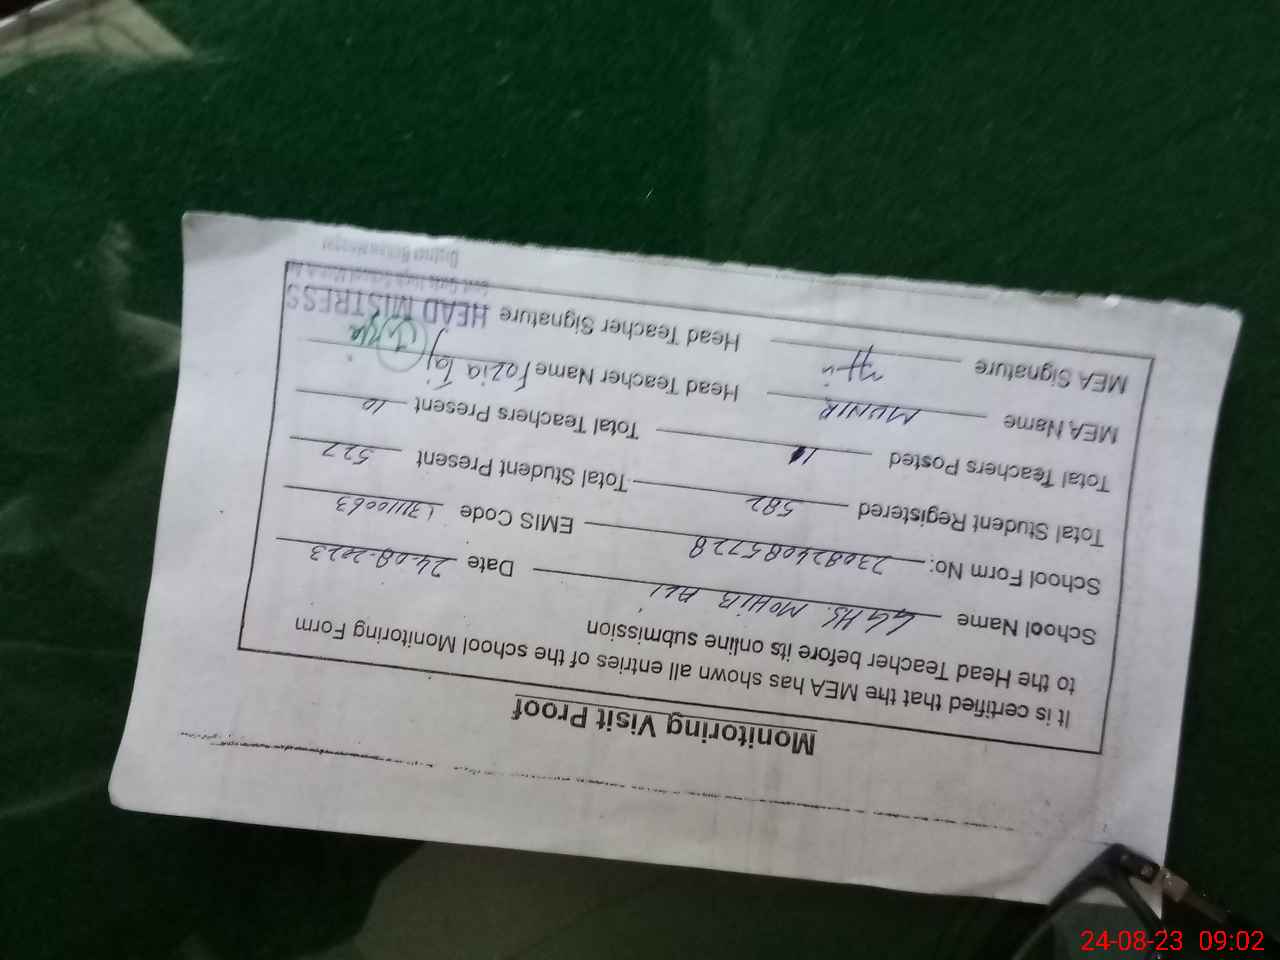 Monitoring Visit Proof
It is certified that the MEA has shown all entries of the school Monitoring Form
to the Head Teacher before its online submission
School Name GGHS. MOHIB ALI Date 24-08-2023
School Form No: 230824085728 EMIS Code 13110063
Total Student Registered 582 Total Student Present 527
Total Teachers Posted Total Teachers Present 10
MEA Name MUNIR Head Teacher Name Fozia Taj
MEA Signature Head Teacher Signature HEAD MISTRESS
Govt. Girls High School
District
24-08-23 09:02